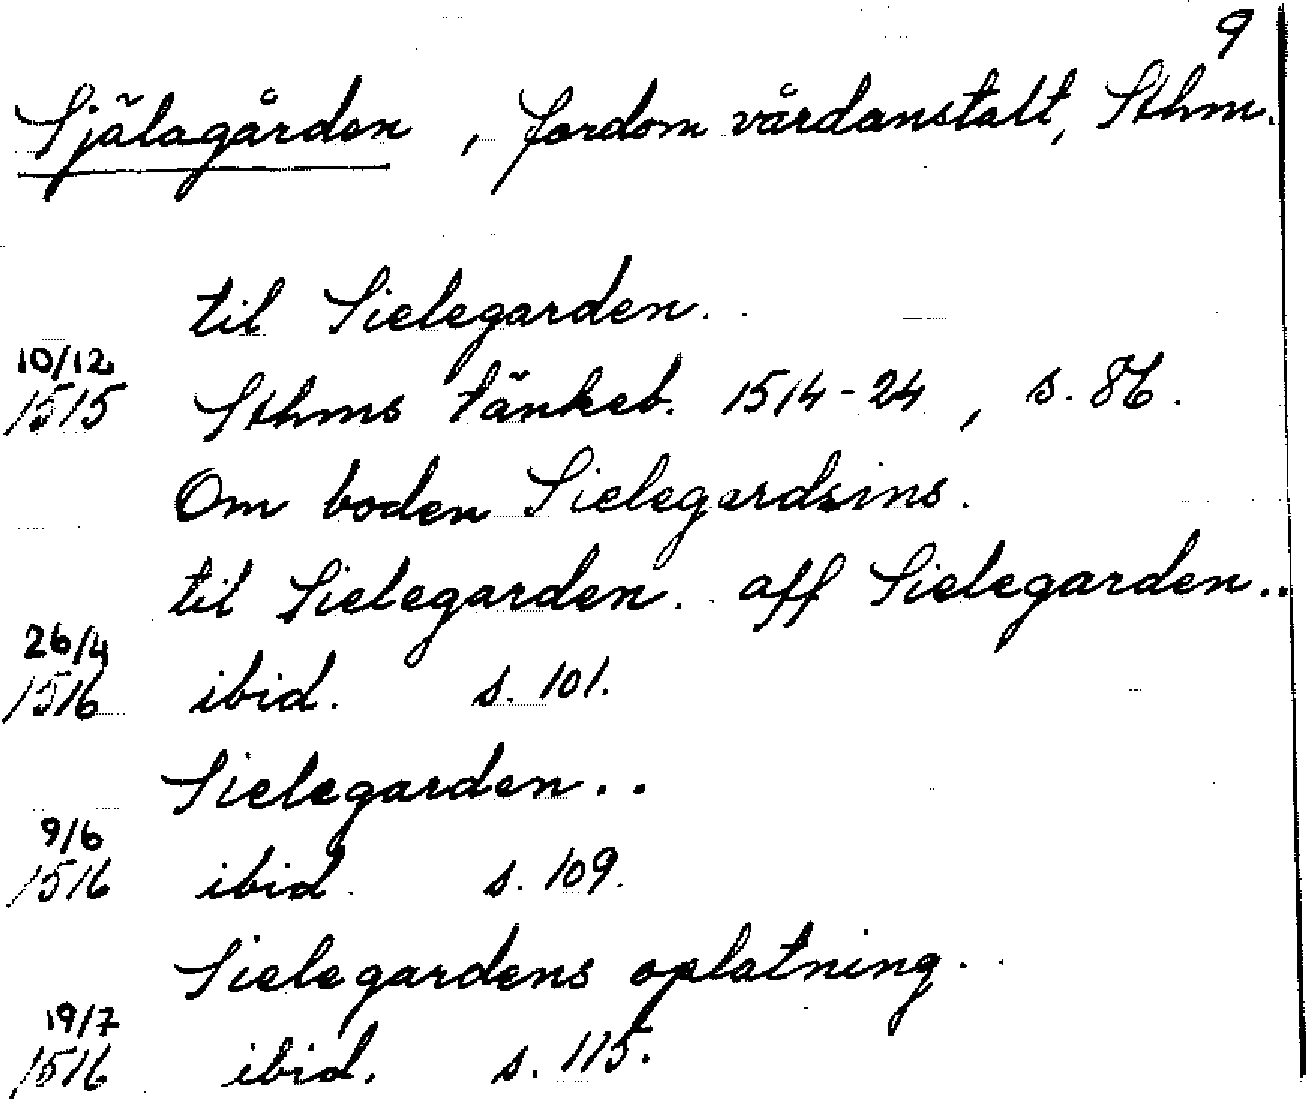 9
Själagården, fordom vårdanstalt, Sthm.
til Sielegarden..
10/12
1515 Sthms tänkeb. 1514-24, s. 86.
Om boden Sielegardsins.
til Sielegarden. aff Sielegarden..
26/4
1516 ibid. s. 101.
Sielegarden..
9/6
1516 ibid. s. 109.
Sielegardens oplatning..
19/7
1516 ibid. s. 115.